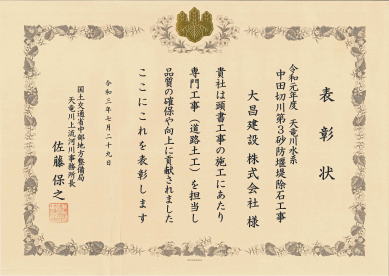 表彰状
令和元年度 天竜川水系
中田切川第3砂防堰堤除石工事
大昌建設 株式会社 様
貴社は頭書工事の施工にあたり
専門工事（道路土工）を担当し
品質の確保や向上に貢献されました
ここにこれを表彰します
令和三年七月二十九日
国土交通省中部地方整備局
天竜川上流河川事務所長
佐藤保之